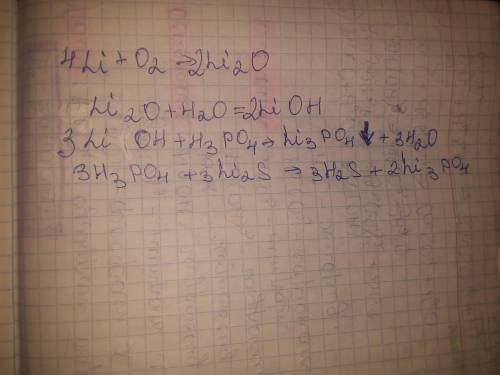 4Li + O₂ → 2Li₂O
Li₂O + H₂O = 2LiOH
3Li OH + H₃PO₄ → Li₃PO₄↓ + 3H₂O
3H₃PO₄ + 3Li₂S → 3H₂S + 2Li₃PO₄